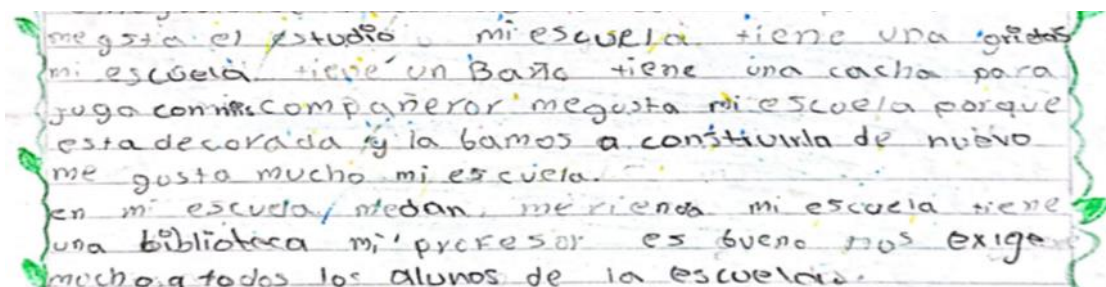 me gsta el estudio. mi escuela tiene una grietas
mi escuela. tiene un Baño tiene una cacha para
juga con mis compañeror megusta mi escuela porque
esta decorada y la bamos a constiuirla de nuevo
me gusta mucho mi escuela.
en mi escuela, medan, merienda mi escuela tiene
una biblioteca mi profesor es bueno nos exige
mucho a todos los alunos de la escuela